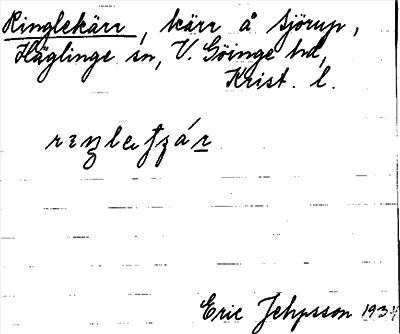 Ringlekärr, kärr å Sjörup,
Häglinge sn, V. Göinge hd,
Krist. l.
Eric Jehpsson 1934